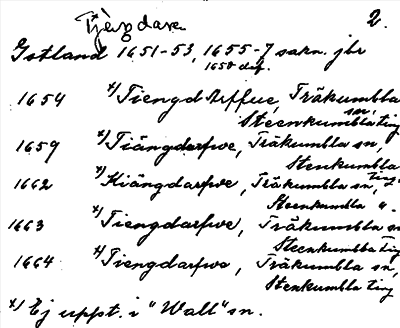 Tjängdare 2.
Gotland 1651-53, 1655-7 sakn. jbr
1658 def.
1654 x) Tiengdarffue, Träkumbla sn,
Steenkumbla ting
1659 x) Tiängdarfwe, Träkumbla sn,
Stenkumbla ting
1662 x) Kiängdarfwe, Träkumbla sn,
Steenkumbla "-
1663 x) Tiengdarfwe, Träkumbla sn
Steenkumbla ting
1664 x) Tiengdarfwo, Träkumbla sn,
Stenkumbla ting
x) Ej uppt. i "Wall" sn.